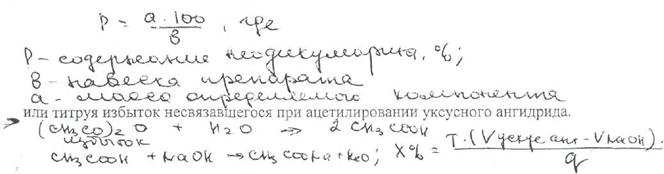 P = a·100 / в , где
P – содержание неодикумарина, %;
в – навеска препарата
а – масса определяемого компонента
или титруя избыток несвязавшегося при ацетилировании уксусного ангидрида.
(CH₃CO)₂O + H₂O → 2 CH₃COOH
избыток
CH₃COOH + NaOH → CH₃COONa + H₂O; X% = T·(Vуксус анг - VNaOH)· / q